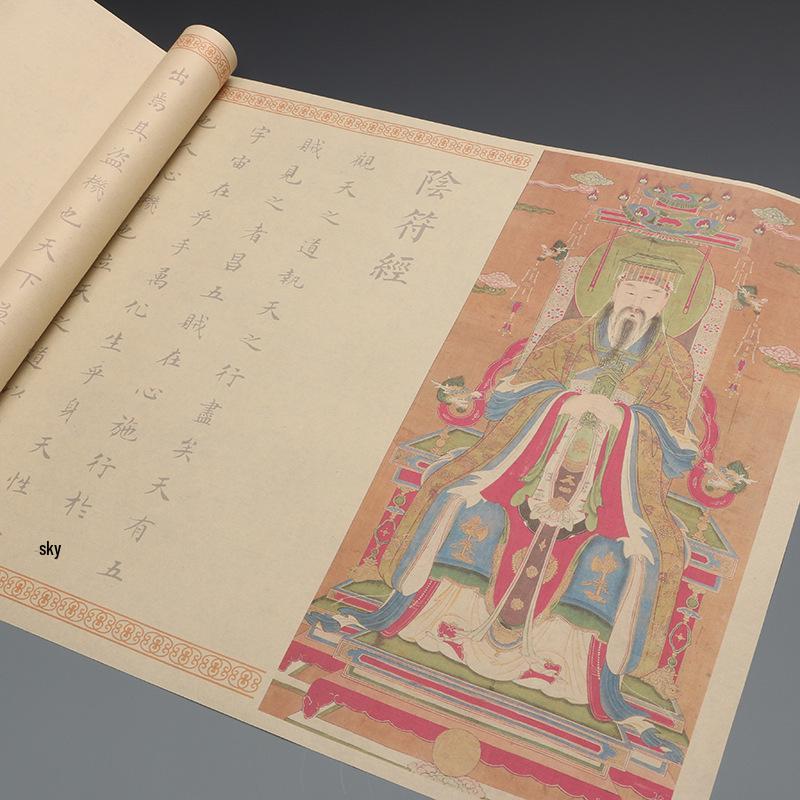 陰符經
觀天之道執天之行盡矣天有五
賊見之者昌五賊在心施行於
宇宙在乎手萬化生乎身天性
也人心機也立天之道以
出焉其盜機也天下莫
sky